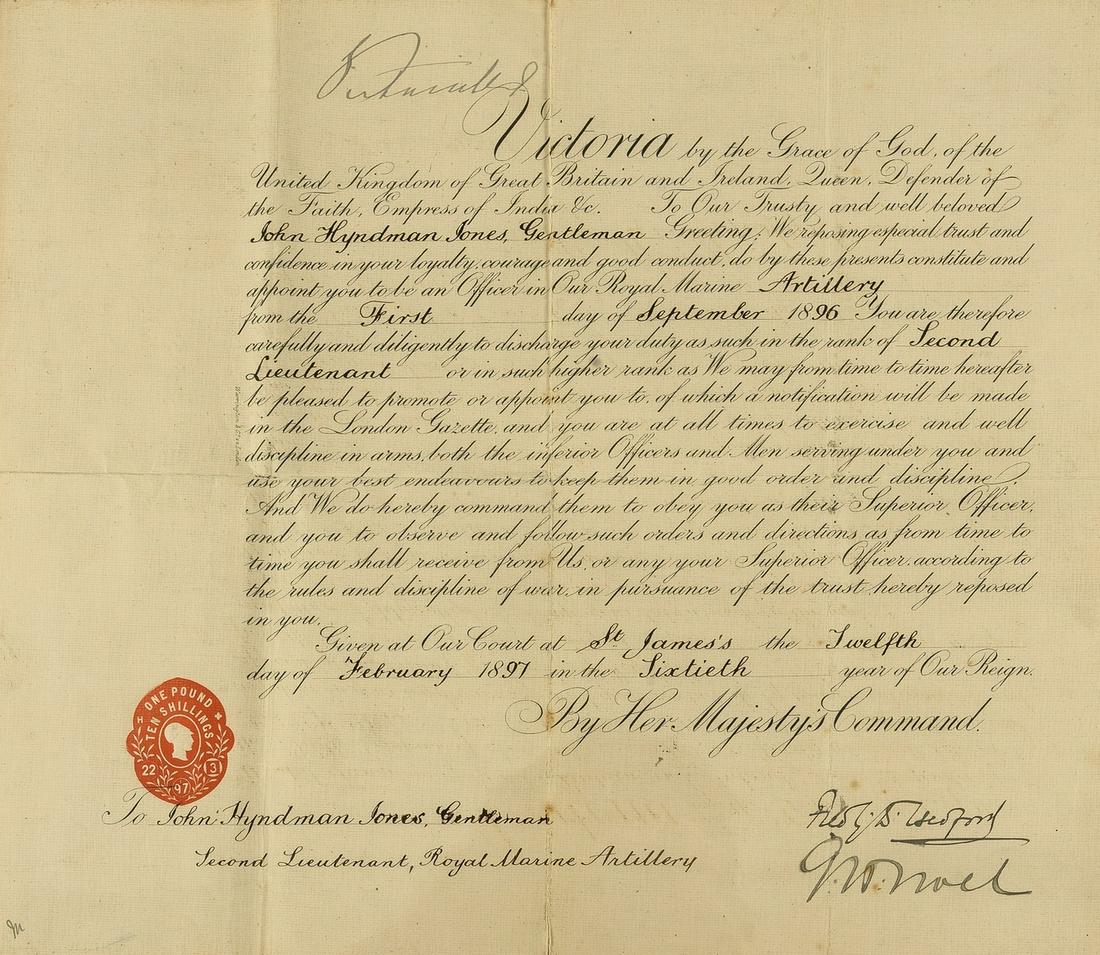 Victoria R I
Victoria by the Grace of God, of the
United Kingdom of Great Britain and Ireland, Queen, Defender of
the Faith, Empress of India &c. To Our Trusty and well beloved
John Hyndman Jones, Gentleman Greeting: We reposing especial trust and
confidence in your loyalty, courage and good conduct, do by these presents constitute and
appoint you to be an Officer in Our Royal Marine Artillery
from the First day of September 1896 You are therefore
carefully and diligently to discharge your duty as such in the rank of Second
Lieutenant or in such higher rank as We may from time to time hereafter
be pleased to promote or appoint you to, of which a notification will be made
in the London Gazette, and you are at all times to exercise and well
discipline in arms, both the inferior Officers and Men serving under you and
use your best endeavours to keep them in good order and discipline.
And We do hereby command them to obey you as their Superior Officer,
and you to observe and follow such orders and directions as from time to
time you shall receive from Us, or any your Superior Officer, according to
the rules and discipline of war, in pursuance of the trust hereby reposed
in you.
Given at Our Court at St James's the Twelfth
day of February 1897 in the Sixtieth year of Our Reign.
By Her Majesty's Command.
ONE POUND
TEN SHILLINGS
22 3
97
To John Hyndman Jones, Gentleman
Second Lieutenant, Royal Marine Artillery
Fred G D Bedford
G. H. Noel